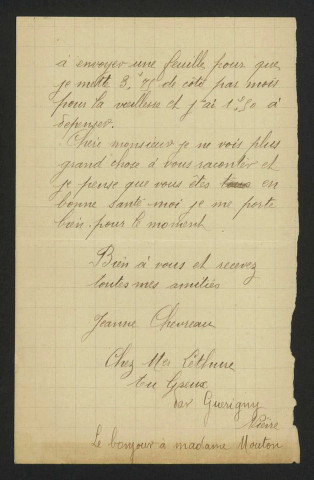 à envoyer une feuille pour que
je mette 3,75 de côté par mois
pour la vieillesse et j'ai 1,50 à
depenser.
Cheri monsieur je ne vois plus
grand chose à vous raconter et
je pense que vous êtes en
bonne santé moi je me porte
bien pour le moment
Bien à vous et recevez
toutes mes amitiés
Jeanne Chevreau
Chez Mr
par Guerigny
Nièvre
Le bonjour à madame Mouton